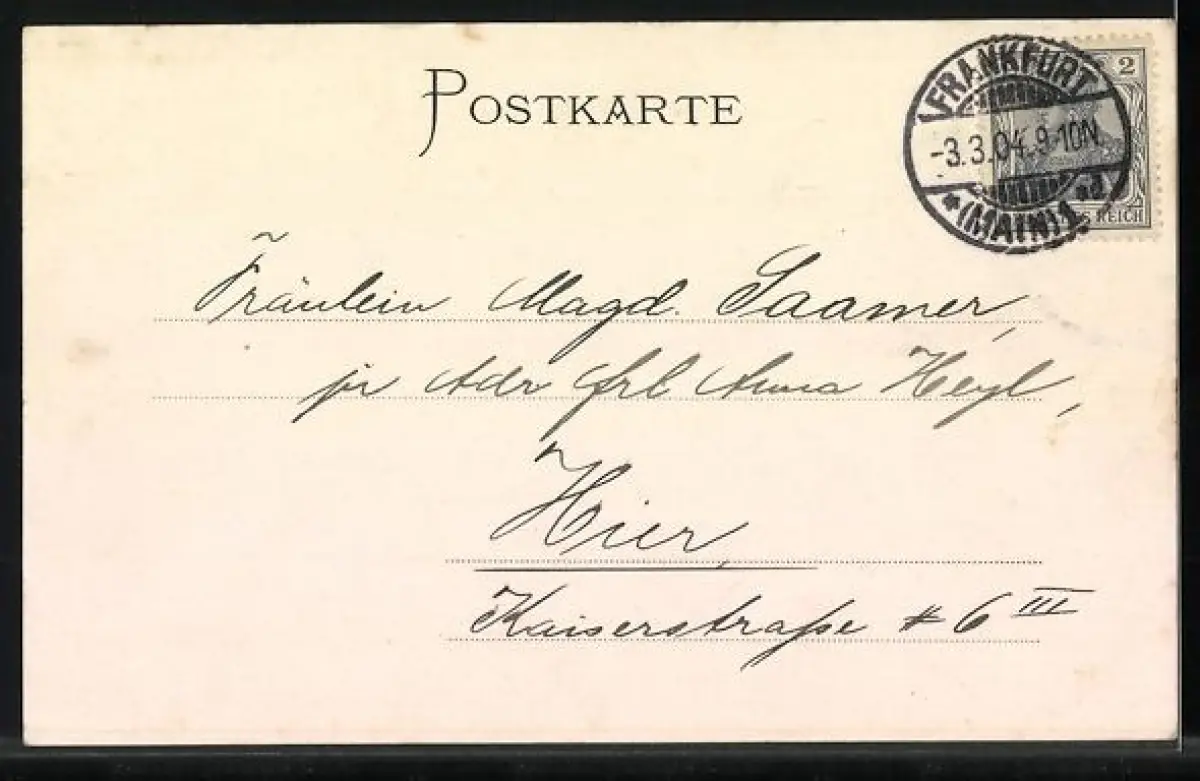 POSTKARTE
2
FRANKFURT
-3.3.04. 9-10N.
*(MAIN)1.*d
S REICH
Fräulein Magd. Saamer,
pr Adr Frl Anna Heyl,
Hier,
Kaiserstraße # 6 III